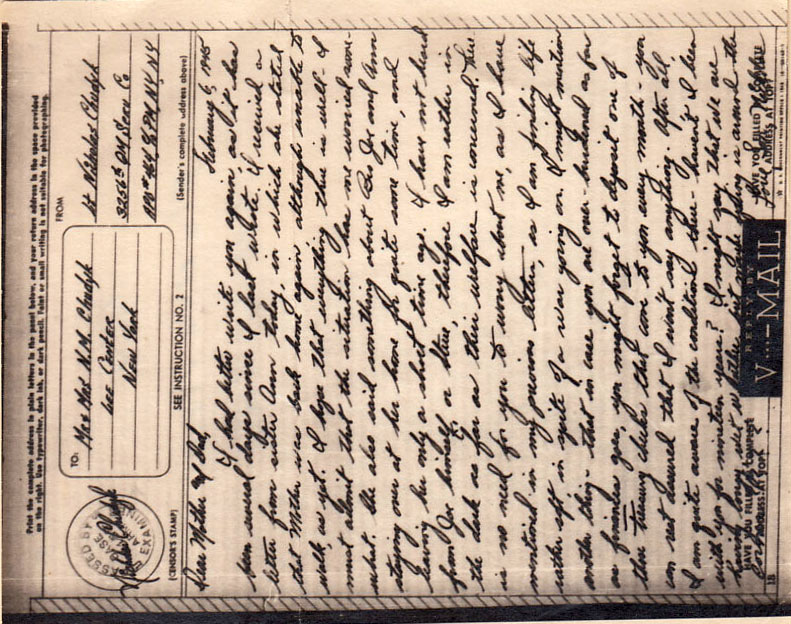 Print the complete address in plain letters in the panel below, and your return address in the space provided
on the right. Use typewriter, dark ink, or dark pencil. Faint or small writing is not suitable for photographing.
FROM
TO:
Mr & Mrs N.M. Chudyk
Lee Center
New York
Lt Nicholas Chudyk
3256th
APO # 464 % PM NY NY
PASSED BY
EXAMINER
(CENSOR'S STAMP)
SEE INSTRUCTION NO. 2
(Sender's complete address above)
February 6, 1945
Dear Mother and Dad,
I had better write you again as it has
been several days since I last wrote. I received a
letter from sister Ann today, in which she stated
that Mother was back home again, although unable to
walk as yet. I hope that everything there is well - I
must admit that the situation has me worried some-
what. She also said something about Joe and Ann
staying over at her home for quite some time, and
leaving her only a short time ago. I have not heard
from Joe himself a line, therefore I am rather in
the dark as far as their welfare is concerned. There
is no need for you to worry about me, as I have
mentioned in my previous letters, as I am finding life
rather soft in spite of a war going on. I might mention
another thing, that in case you are over-burdened as far
as finances go, you might forget to deposit one of
those checks that come to you every month - you
can rest assured that I won't say anything. After all
I am quite aware of the conditions there - haven't I been
with you for nineteen years? I might say, that we are
having lousy wet weather but maybe spring is around the
HAVE YOU FILLED IN COMPLETE
ADDRESS AT TOP?
REPLY BY
V···—MAIL
HAVE YOU FILLED IN COMPLETE
ADDRESS AT TOP?